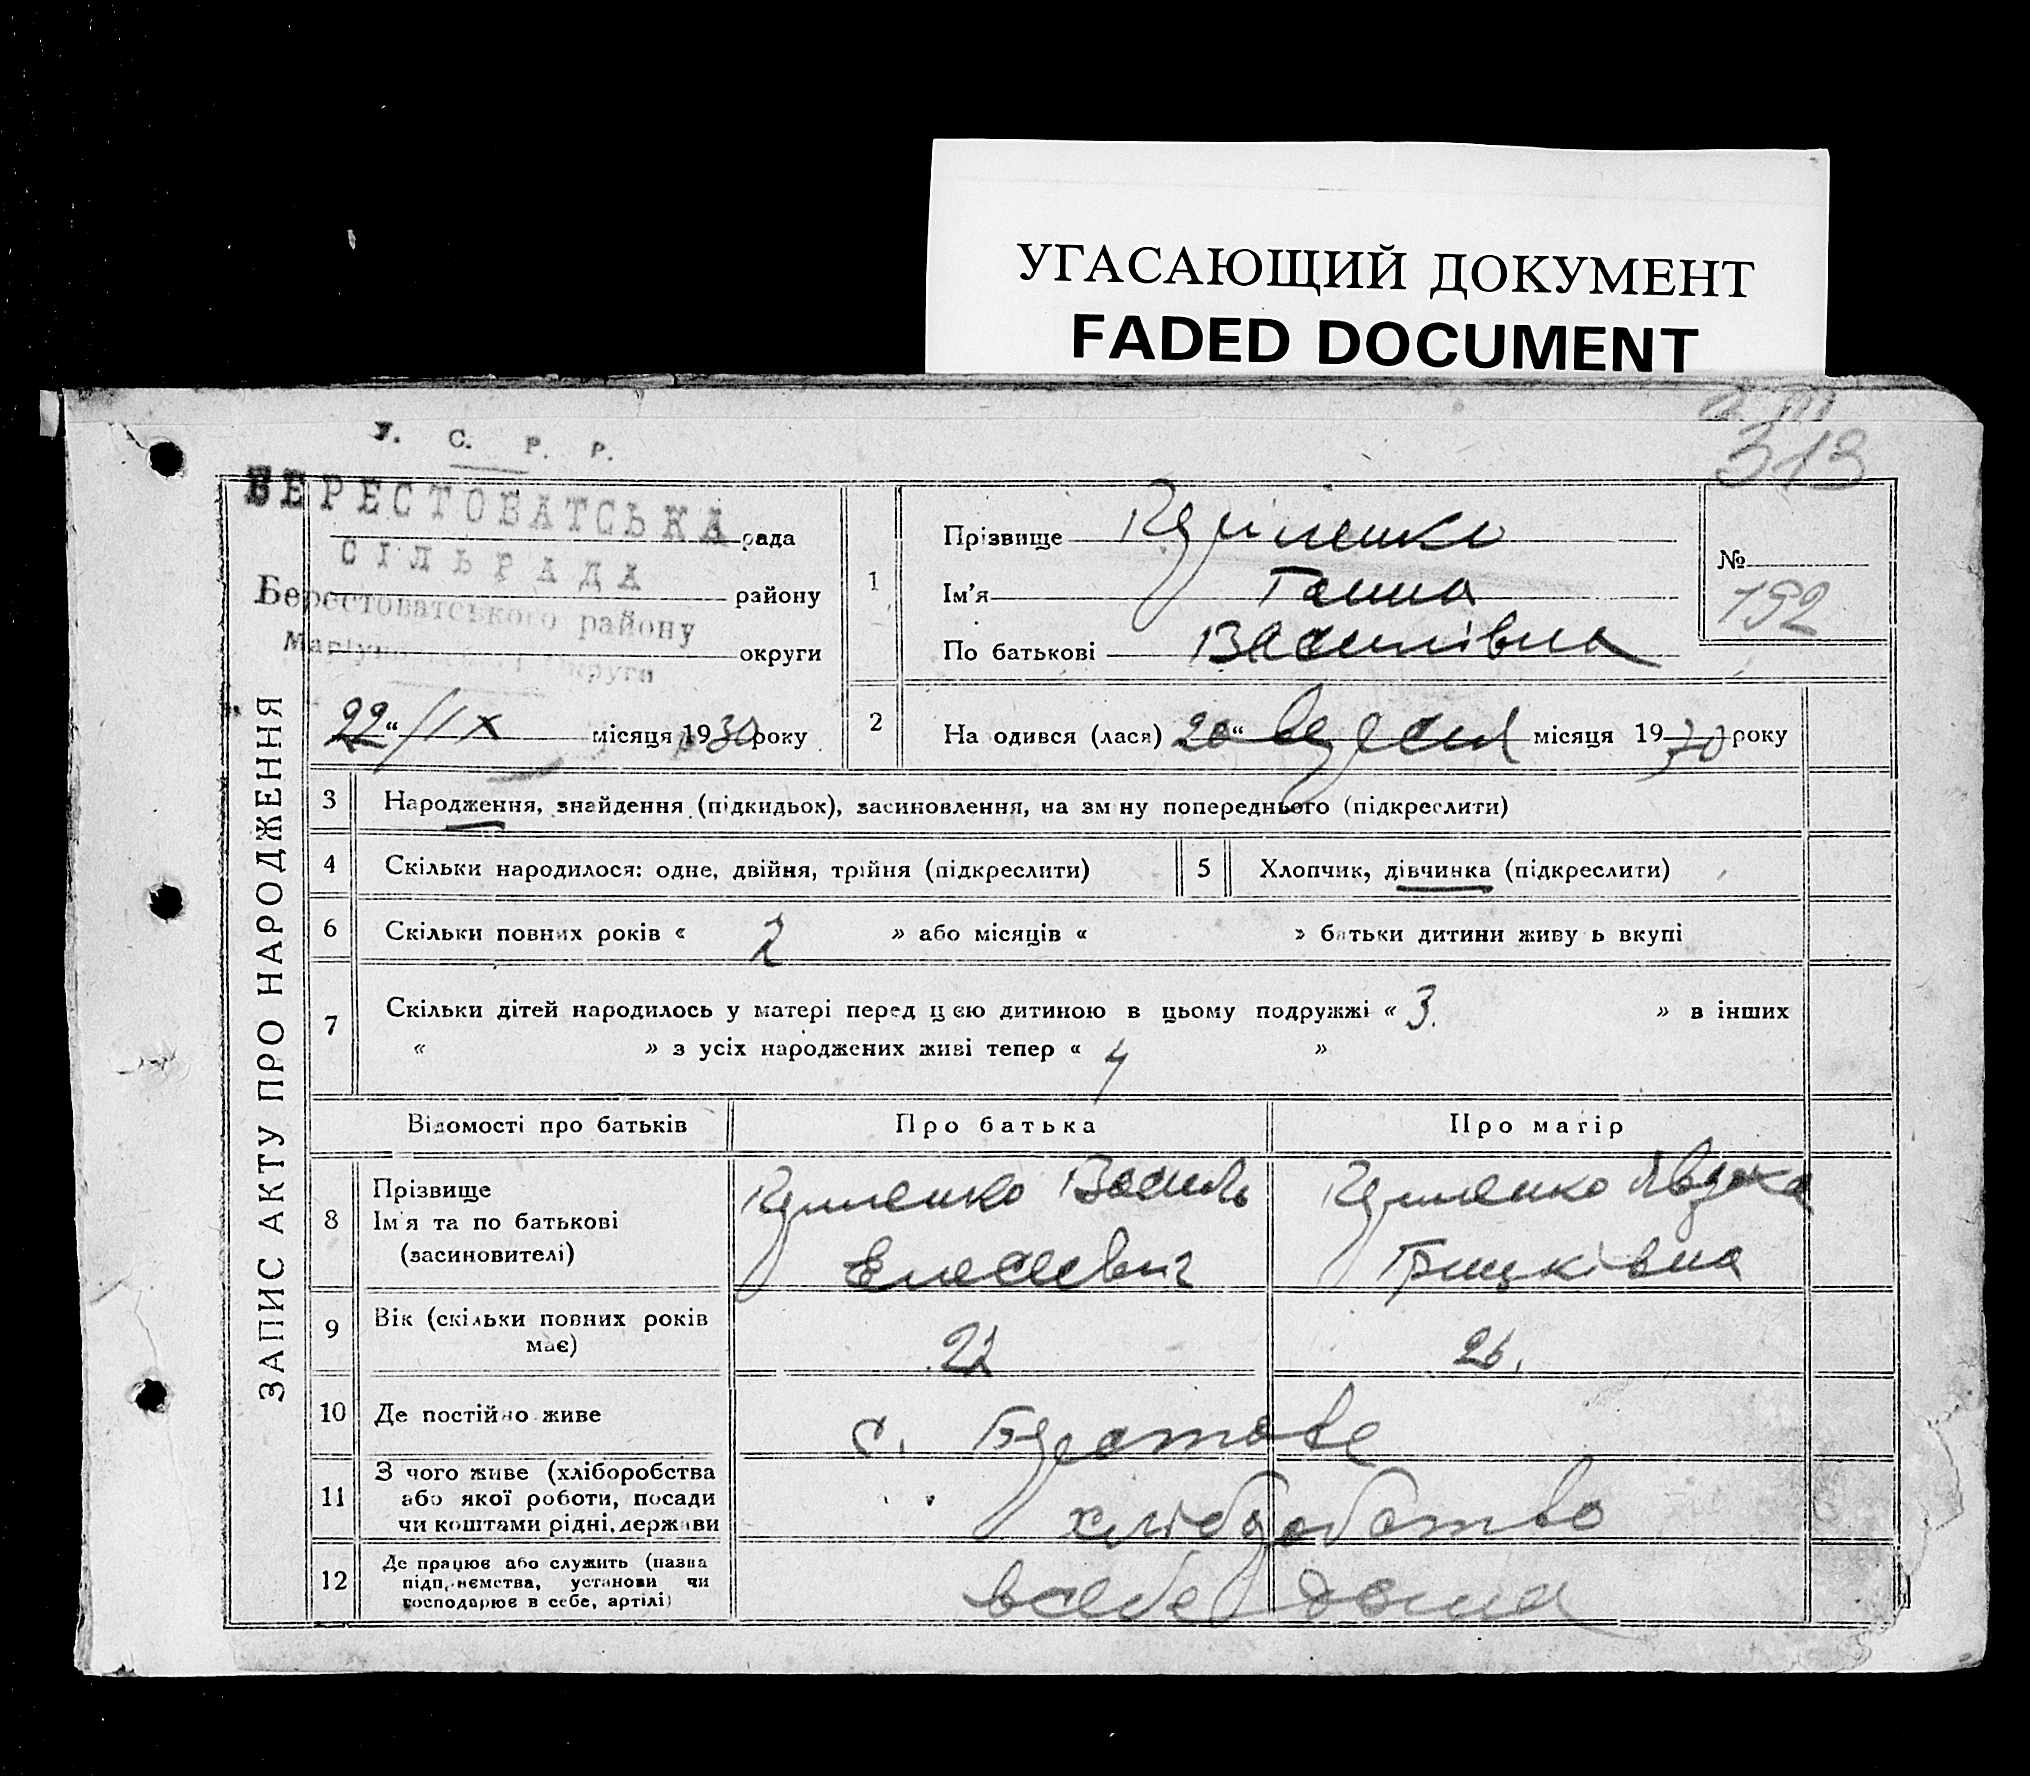 УГАСАЮЩИЙ ДОКУМЕНТ
FADED DOCUMENT
313
У. С. Р. Р.
БЕРЕСТОВАТСЬКА рада
СІЛЬРАДА
району
Берестоватського району
округи
22 “ IX місяця 1930 року
ЗАПИС АКТУ ПРО НАРОДЖЕННЯ
1
Прізвище
Ім'я Ганна
По батькові Василівна
№
192
2
На одився (лася) 20 “ вересня місяця 1930 року
3 Народження, знайдення (підкидьок), засиновлення, на зм ну попереднього (підкреслити)
4 Скільки народилося: одне, двійня, трійня (підкреслити)
5 Хлопчик, дівчинка (підкреслити)
6 Скільки повних років « 2 » або місяців « » батьки дитини живу ь вкупі
7 Скільки дітей народилось у матері перед цією дитиною в цьому подружжі « 3. » в інших
« » з усіх народжених живі тепер « 4 »
Відомості про батьків Про батька Про матір
8 Прізвище
Ім'я та по батькові
(засиновителі)
Василь
Явдоха
Грицківна
9 Вік (скільки повних років
має)
26.
10 Де постійно живе с. Берестове
11 З чого живе (хліборобства
або якої роботи, посади
чи коштами рідні, держави
хліборобство
12 Де працює або служить (назва
підприємства, установи чи
господарює в себе, артілі)
в себе дома